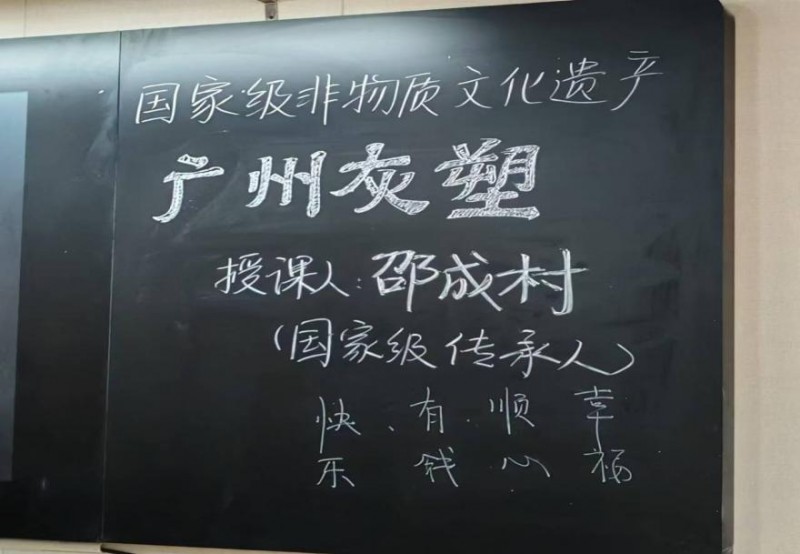 国家级非物质文化遗产
广州灰塑
授课人:邵成村
(国家级传承人)
快、有顺幸
乐钱心福